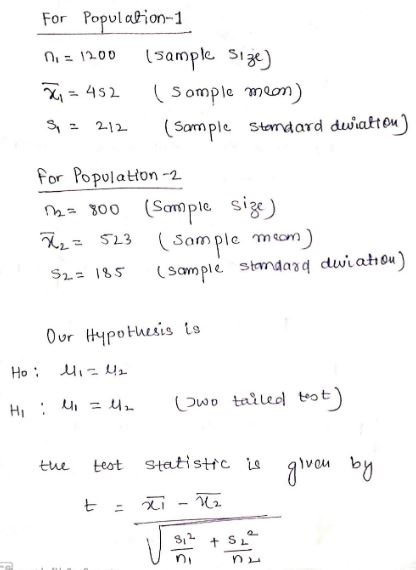 For Population-1
n₁ = 1200 (sample size)
x̄₁ = 452 (sample mean)
s₁ = 212 (sample standard deviation)
for Population-2
n₂ = 800 (sample size)
x̄₂ = 523 (sample mean)
s₂ = 185 (sample standard deviation)
Our Hypothesis is
H₀ : μ₁ = μ₂
H₁ : μ₁ = μ₂ (Two tailed test)
the test statistic is given by
t = x̄₁ - x̄₂ / √(s₁²/n₁ + s₂²/n₂)